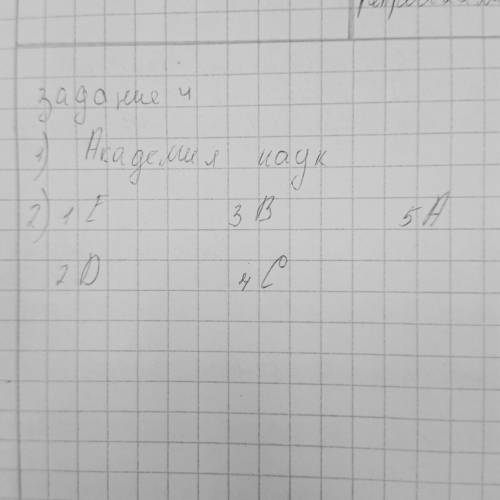 задание 4
1) Академия наук
2) 1 E 3 B 5 A
2 D 4 C